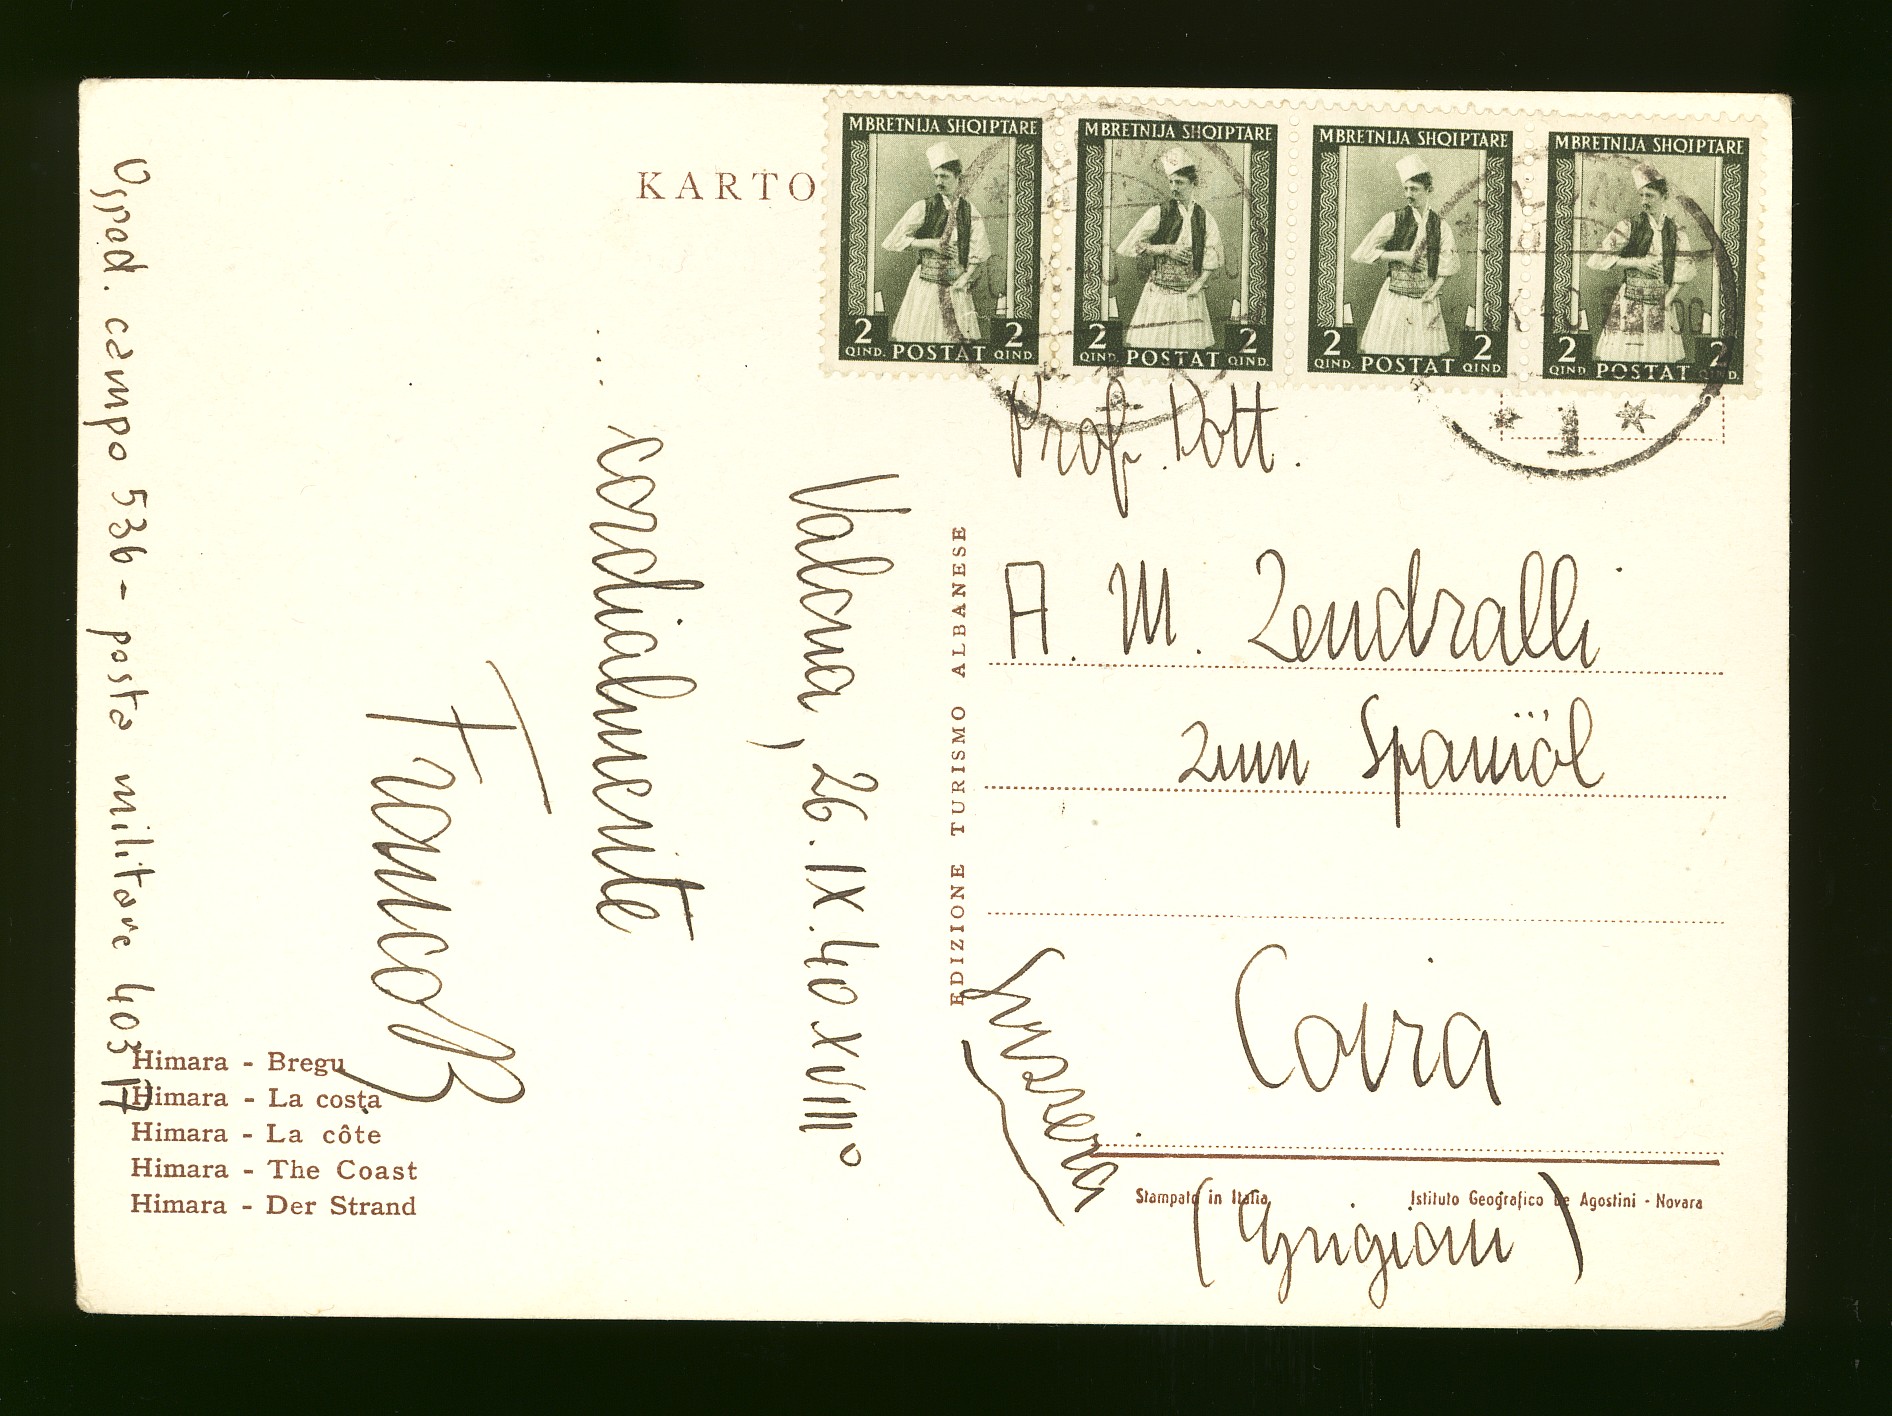 KARTO
MBRETNIJA SHQIPTARE
2 QIND. POSTAT 2 QIND.
MBRETNIJA SHQIPTARE
2 QIND. POSTAT 2 QIND.
MBRETNIJA SHQIPTARE
2 QIND. POSTAT 2 QIND.
MBRETNIJA SHQIPTARE
2 QIND. POSTAT 2 QIND.
* 1 *
Valona, 26. IX. 40 XVIII°
... cordialmente
FrancoB
Ospad. campo 536 - posta militare 403 A
Himara - Bregu
Himara - La costa
Himara - La côte
Himara - The Coast
Himara - Der Strand
EDIZIONE TURISMO ALBANESE
Prof. Dott.
A. M. Zendralli
zum Spaniöl
Coira
(Grigioni)
Svizzera
Stampato in Italia
Istituto Geografico De Agostini - Novara